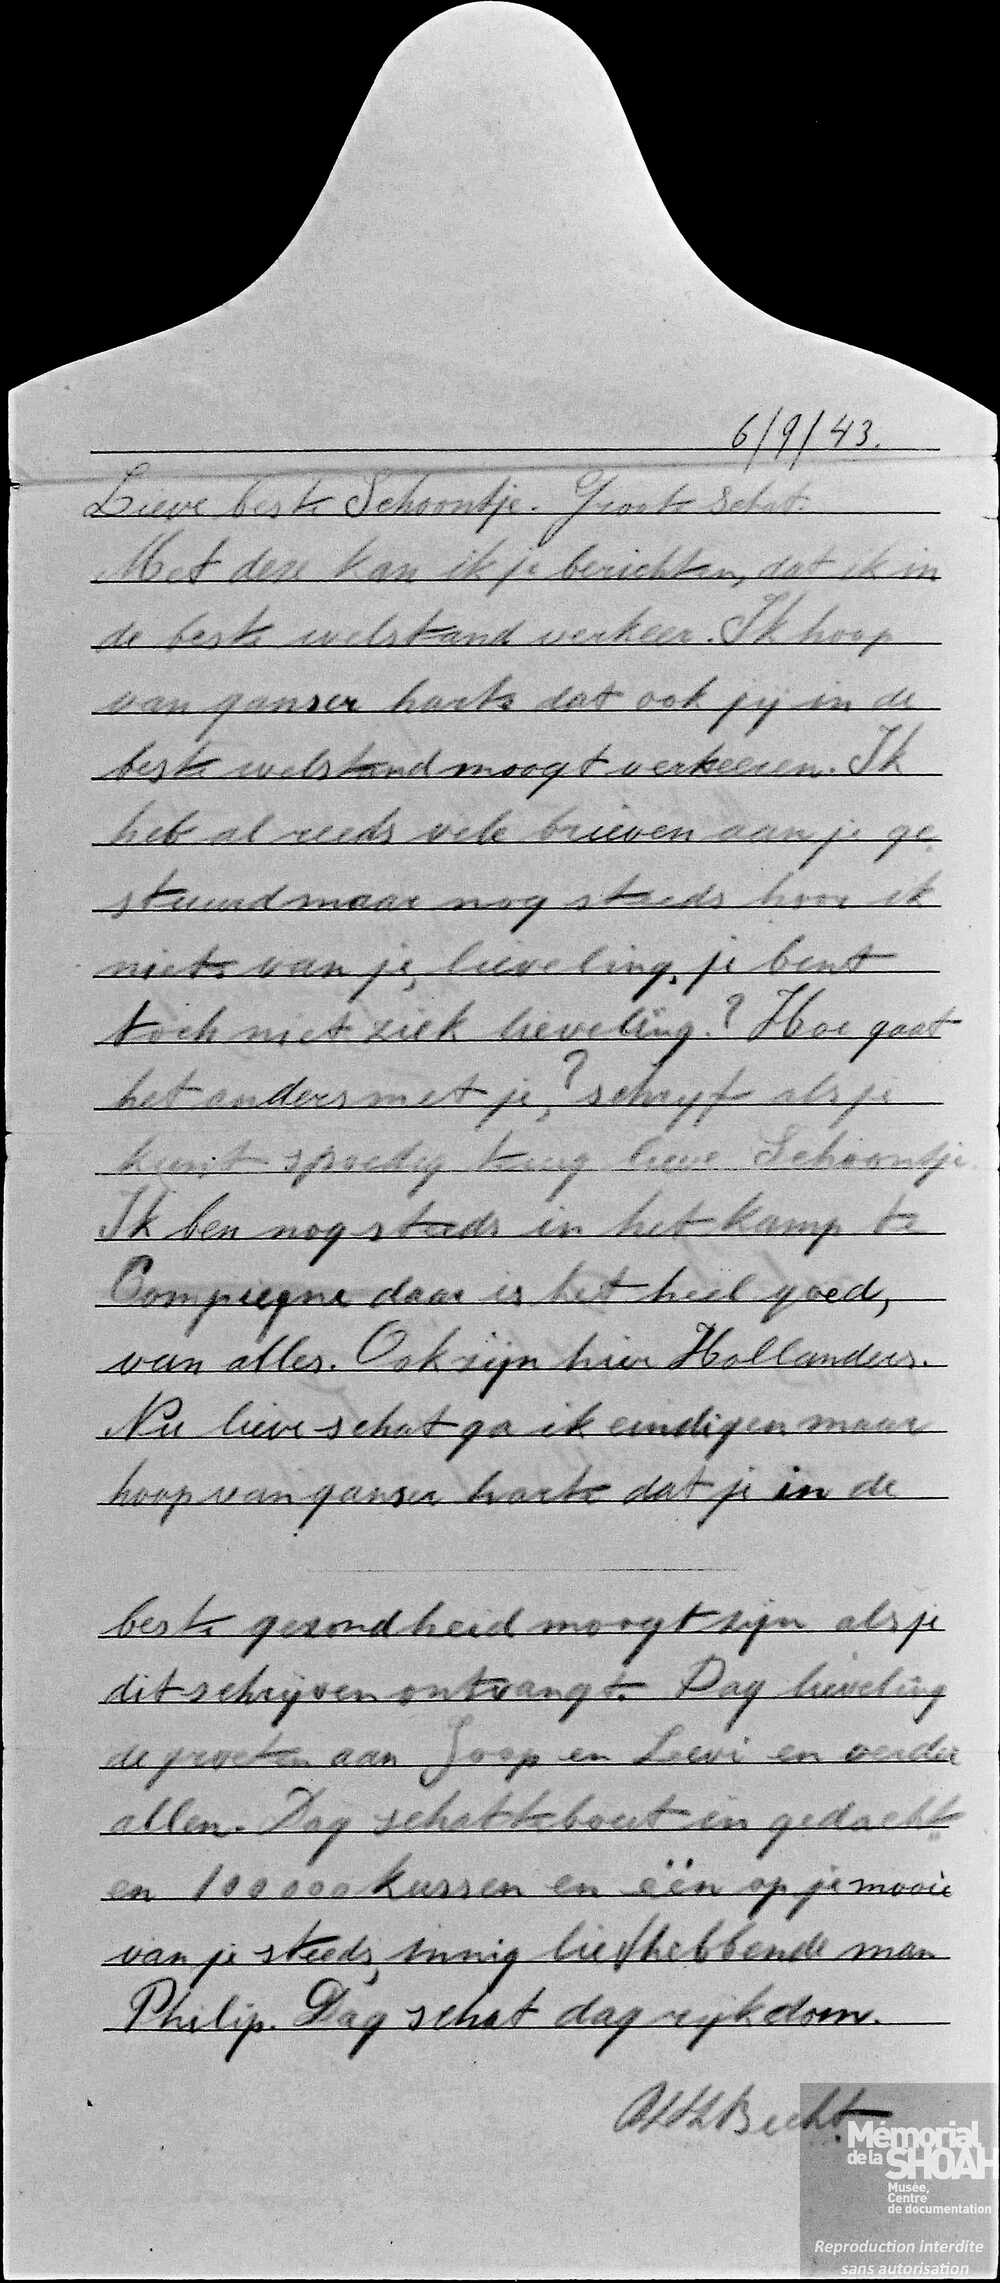 6/9/43.
Lieve beste Schoontje. Groote schat.
Met deze kan ik je berichten, dat ik in
de beste welstand verkeer. Ik hoop
van ganser harte dat ook jij in de
beste welstand moogt verkeeren. Ik
heb al reeds vele brieven aan je ge
stuurd maar nog steeds hoor ik
niets van je, lieveling, je bent
toch niet ziek lieveling.? Hoe gaat
het anders met je,? schrijf als je
kunt spoedig terug lieve Schoontje.
Ik ben nog steeds in het kamp te
Compiegne daar is het heel goed,
van alles. Ook zijn hier Hollanders.
Nu lieve schat ga ik eindigen maar
hoop van ganser harte dat je in de
beste gezondheid moogt zijn als je
dit schrijven ontvangt. Dag lieveling
de groeten aan Joop en Leevi en verder
allen. Dag schattebout in gedacht
en 100000 kussen en één op je mooie
van je steeds, innig liefhebbende man
Philip. Dag schat dag rijkdom.
Becht.
Mémorial
de la SHOAH
Musée,
Centre
de documentation
Reproduction interdite
sans autorisation